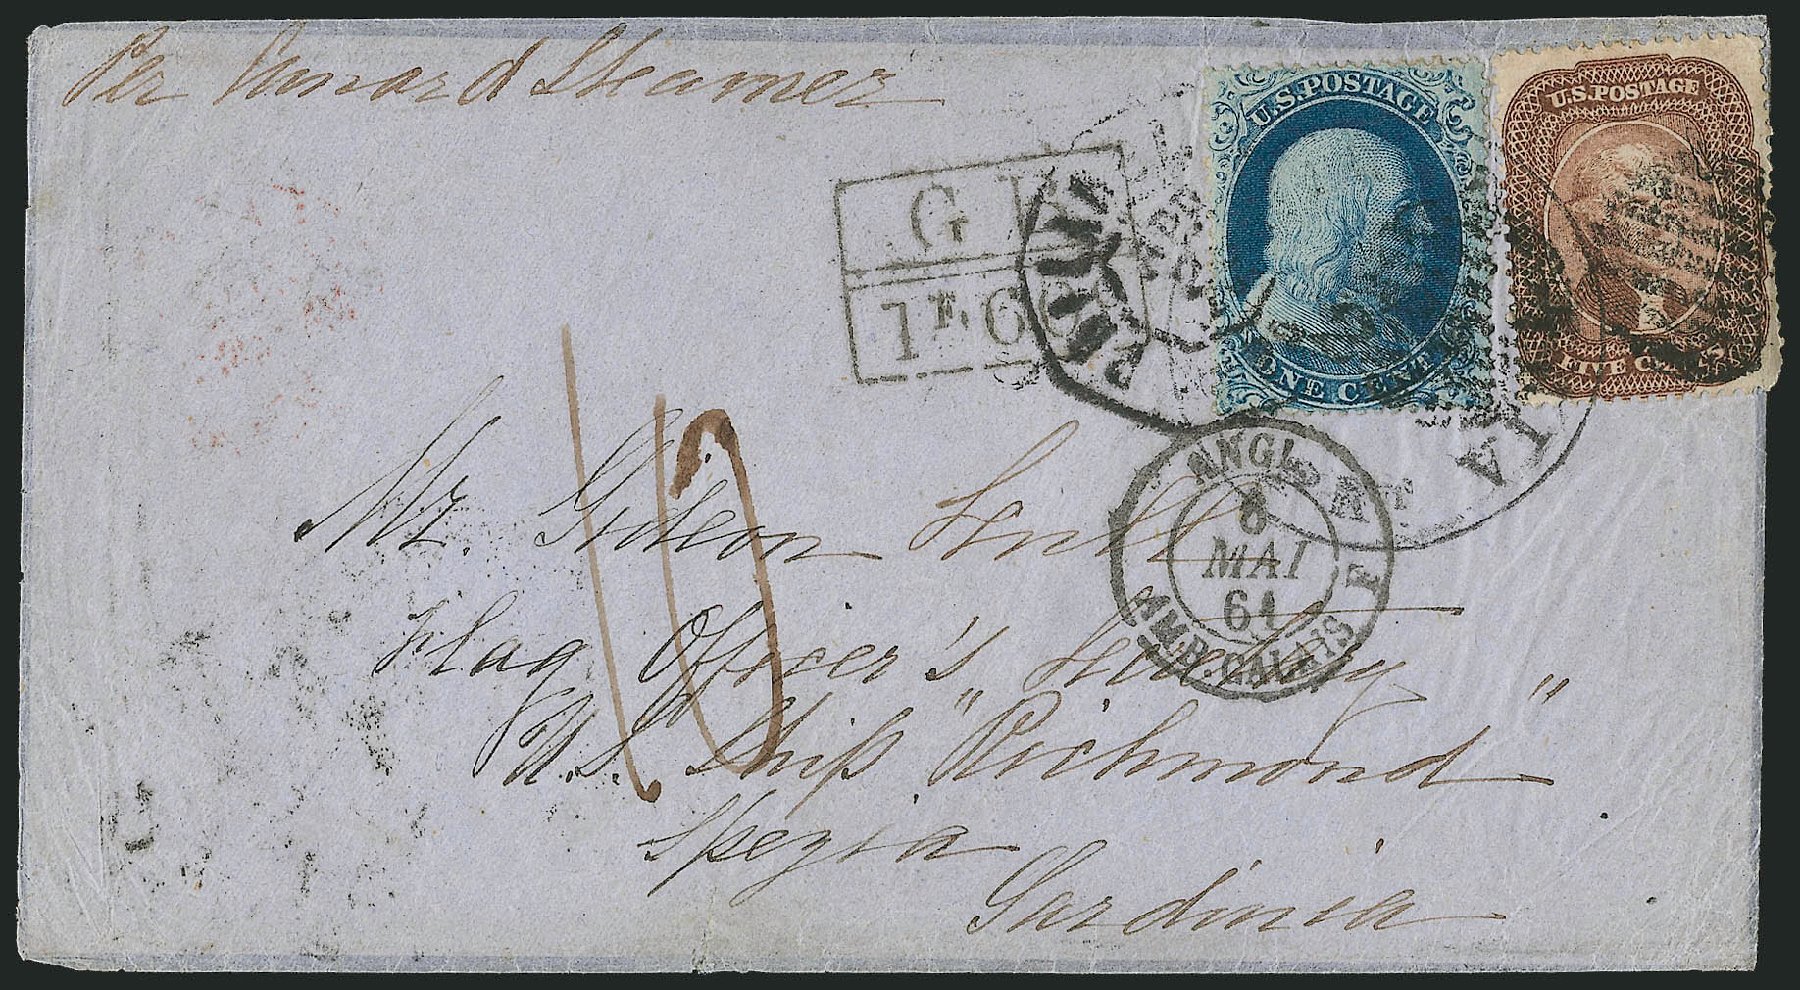 Per Cunard Steamer
U.S. POSTAGE
ONE CENT
U.S. POSTAGE
FIVE CENTS
G B
1 F. 60 C
PHILA
ANGL.
6
MAI
61
AMB. CALAIS F
Mr. Gideon Hull
Flag Officer's Secretary
U.S. Ship "Richmond"
Spezia
Sardinia